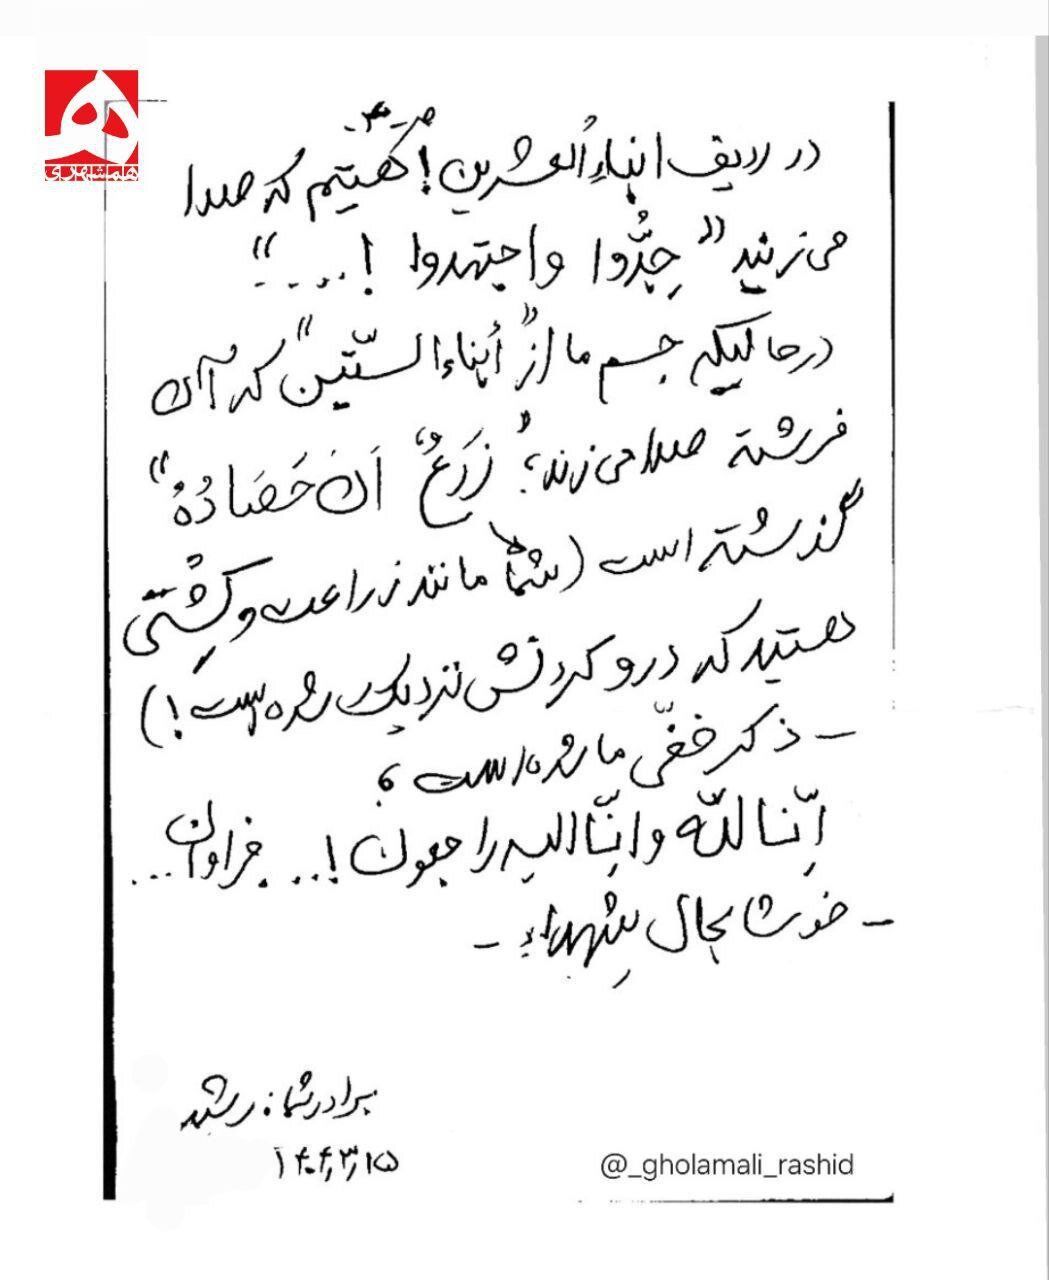 همشهری
-۳-
در ردیف ابناءُ العشرین! گفتیم که صدا
می‌زنند "جِدُّوا واجتهدوا !....."
درحالیکه جسم ما از "أبناء السّتّین" که آن
فرشته صدا می‌زند؛ "زَرَعٌ، آنَ حَصَادُهُ"
گذشته است (شما مانند زراعت و کِشتی
هستید که درو کردنش نزدیک شده است!)
- ذکر خفّی ما شده است؛
اِنّا للّه و اِنّا الیه راجعون!... فراوان...
- خوشا بحال شهداء -
برادر شما: رشید
۱۴۰۴،۳،۱۵
@_gholamali_rashid